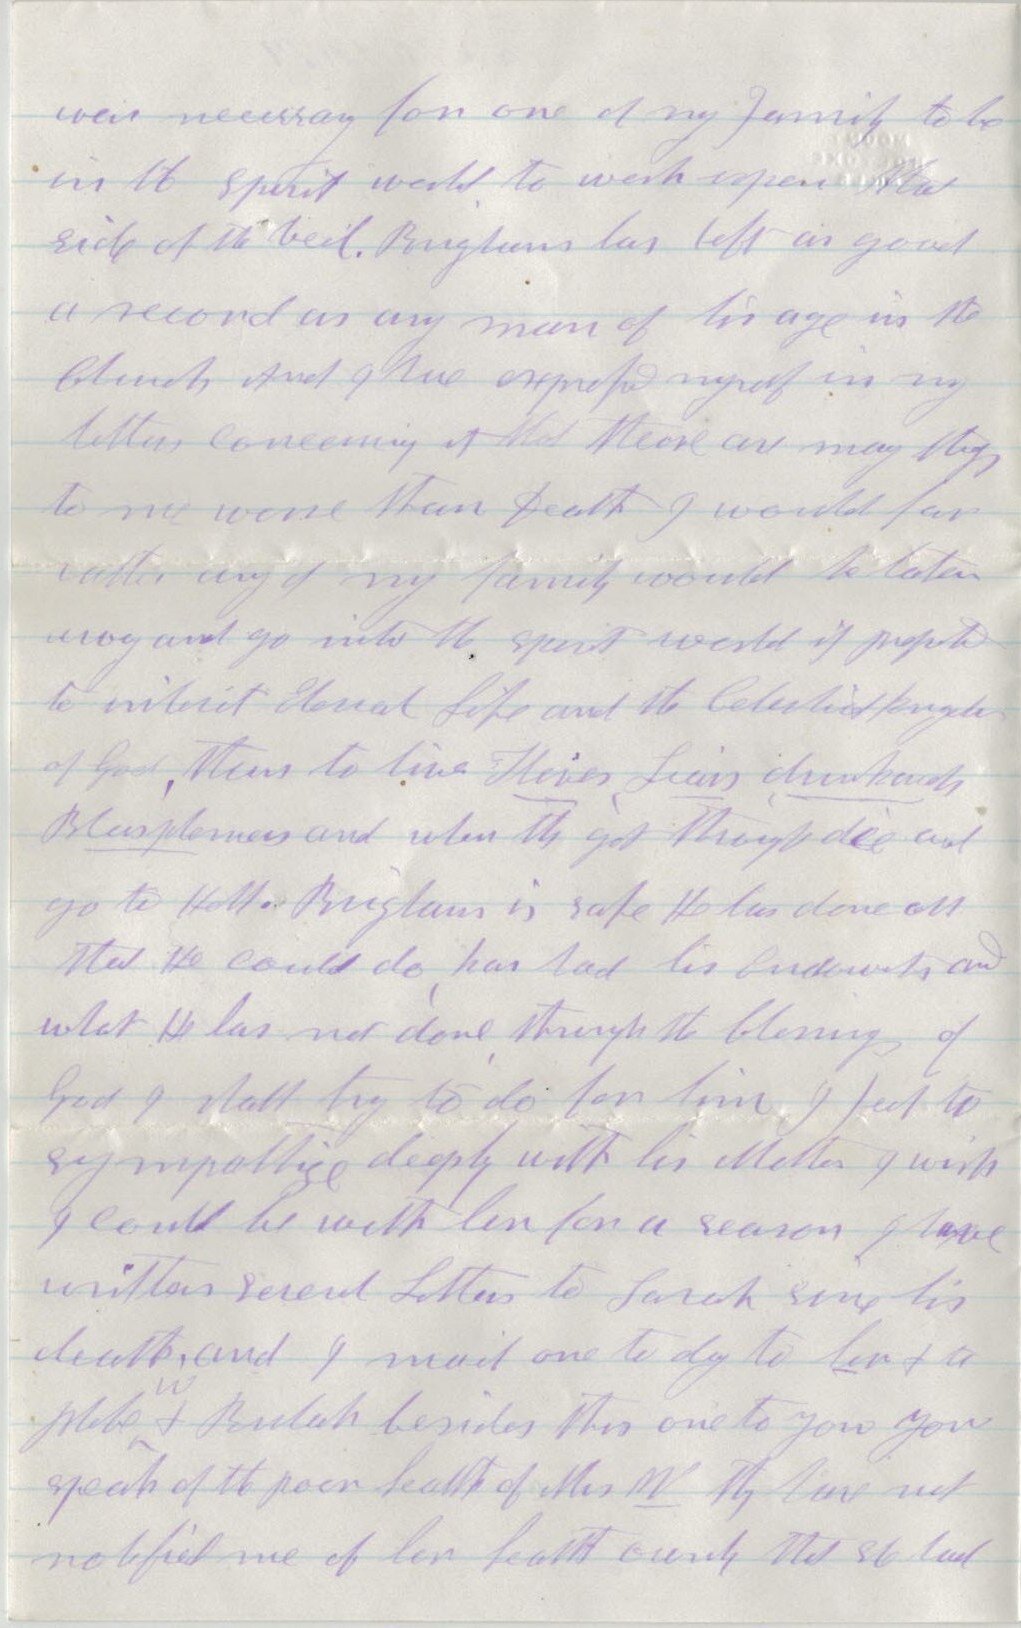 was necessary for one of my Family to be
in the spirit world to work upon that
side of the veil. Brigham has left as good
a record as any man of his age in the
Church And I have expressed myself in my
letters concerning it that there are many things
to me worse than death I would far
rather any of my family would be taken
away and go into the spirit world if prepared
to inherit Eternal Life and the Celestial kingdom
of God, than to live Thieves, Liars, drunkards
Blasphemers and when they got through die and
go to Hell. Brigham is safe He has done all
that He could do, has had his Endowments, and
what He has not done, through the blessings of
God I shall try to do for him, I feel to
sympathize deeply with his Mother I wish
I could be with her for a season I have
written several Letters to Sarah since his
death, and I mail one to day to her & a
& W Beulah besides this one to you You
speak of the poor health of Mrs W They have not
notified me of her health ownly that she had